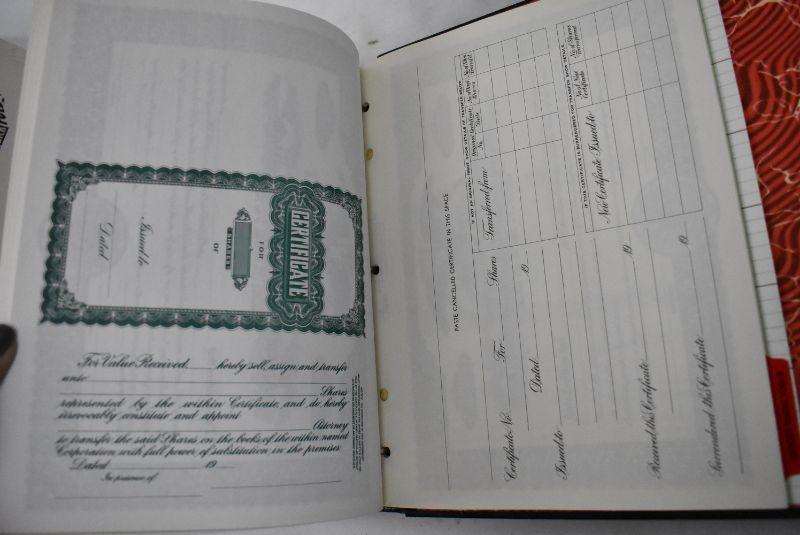 CERTIFICATE
FOR
SHARES
OF
Issued to
Dated
For Value Received, hereby sell, assign and transfer
unto
Shares
represented by the within Certificate, and do hereby
irrevocably constitute and appoint
Attorney
to transfer the said Shares on the books of the within named
Corporation with full power of substitution in the premises.
Dated 19
In presence of
PASTE CANCELLED CERTIFICATE IN THIS SPACE
Certificate No. For Shares
Dated 19
Issued to
IF NOT AN ORIGINAL ISSUE SHOW DETAILS OF TRANSFER BELOW
Transferred from
Original Certificate No.
Date
No. of Orig. Shares
No. of Shs. Transf'd
Received this Certificate 19
Surrendered this Certificate 19
IF THIS CERTIFICATE IS SURRENDERED FOR TRANSFER SHOW DETAILS
New Certificate Issued to
No. of New Certificate
No. of Shares Transferred